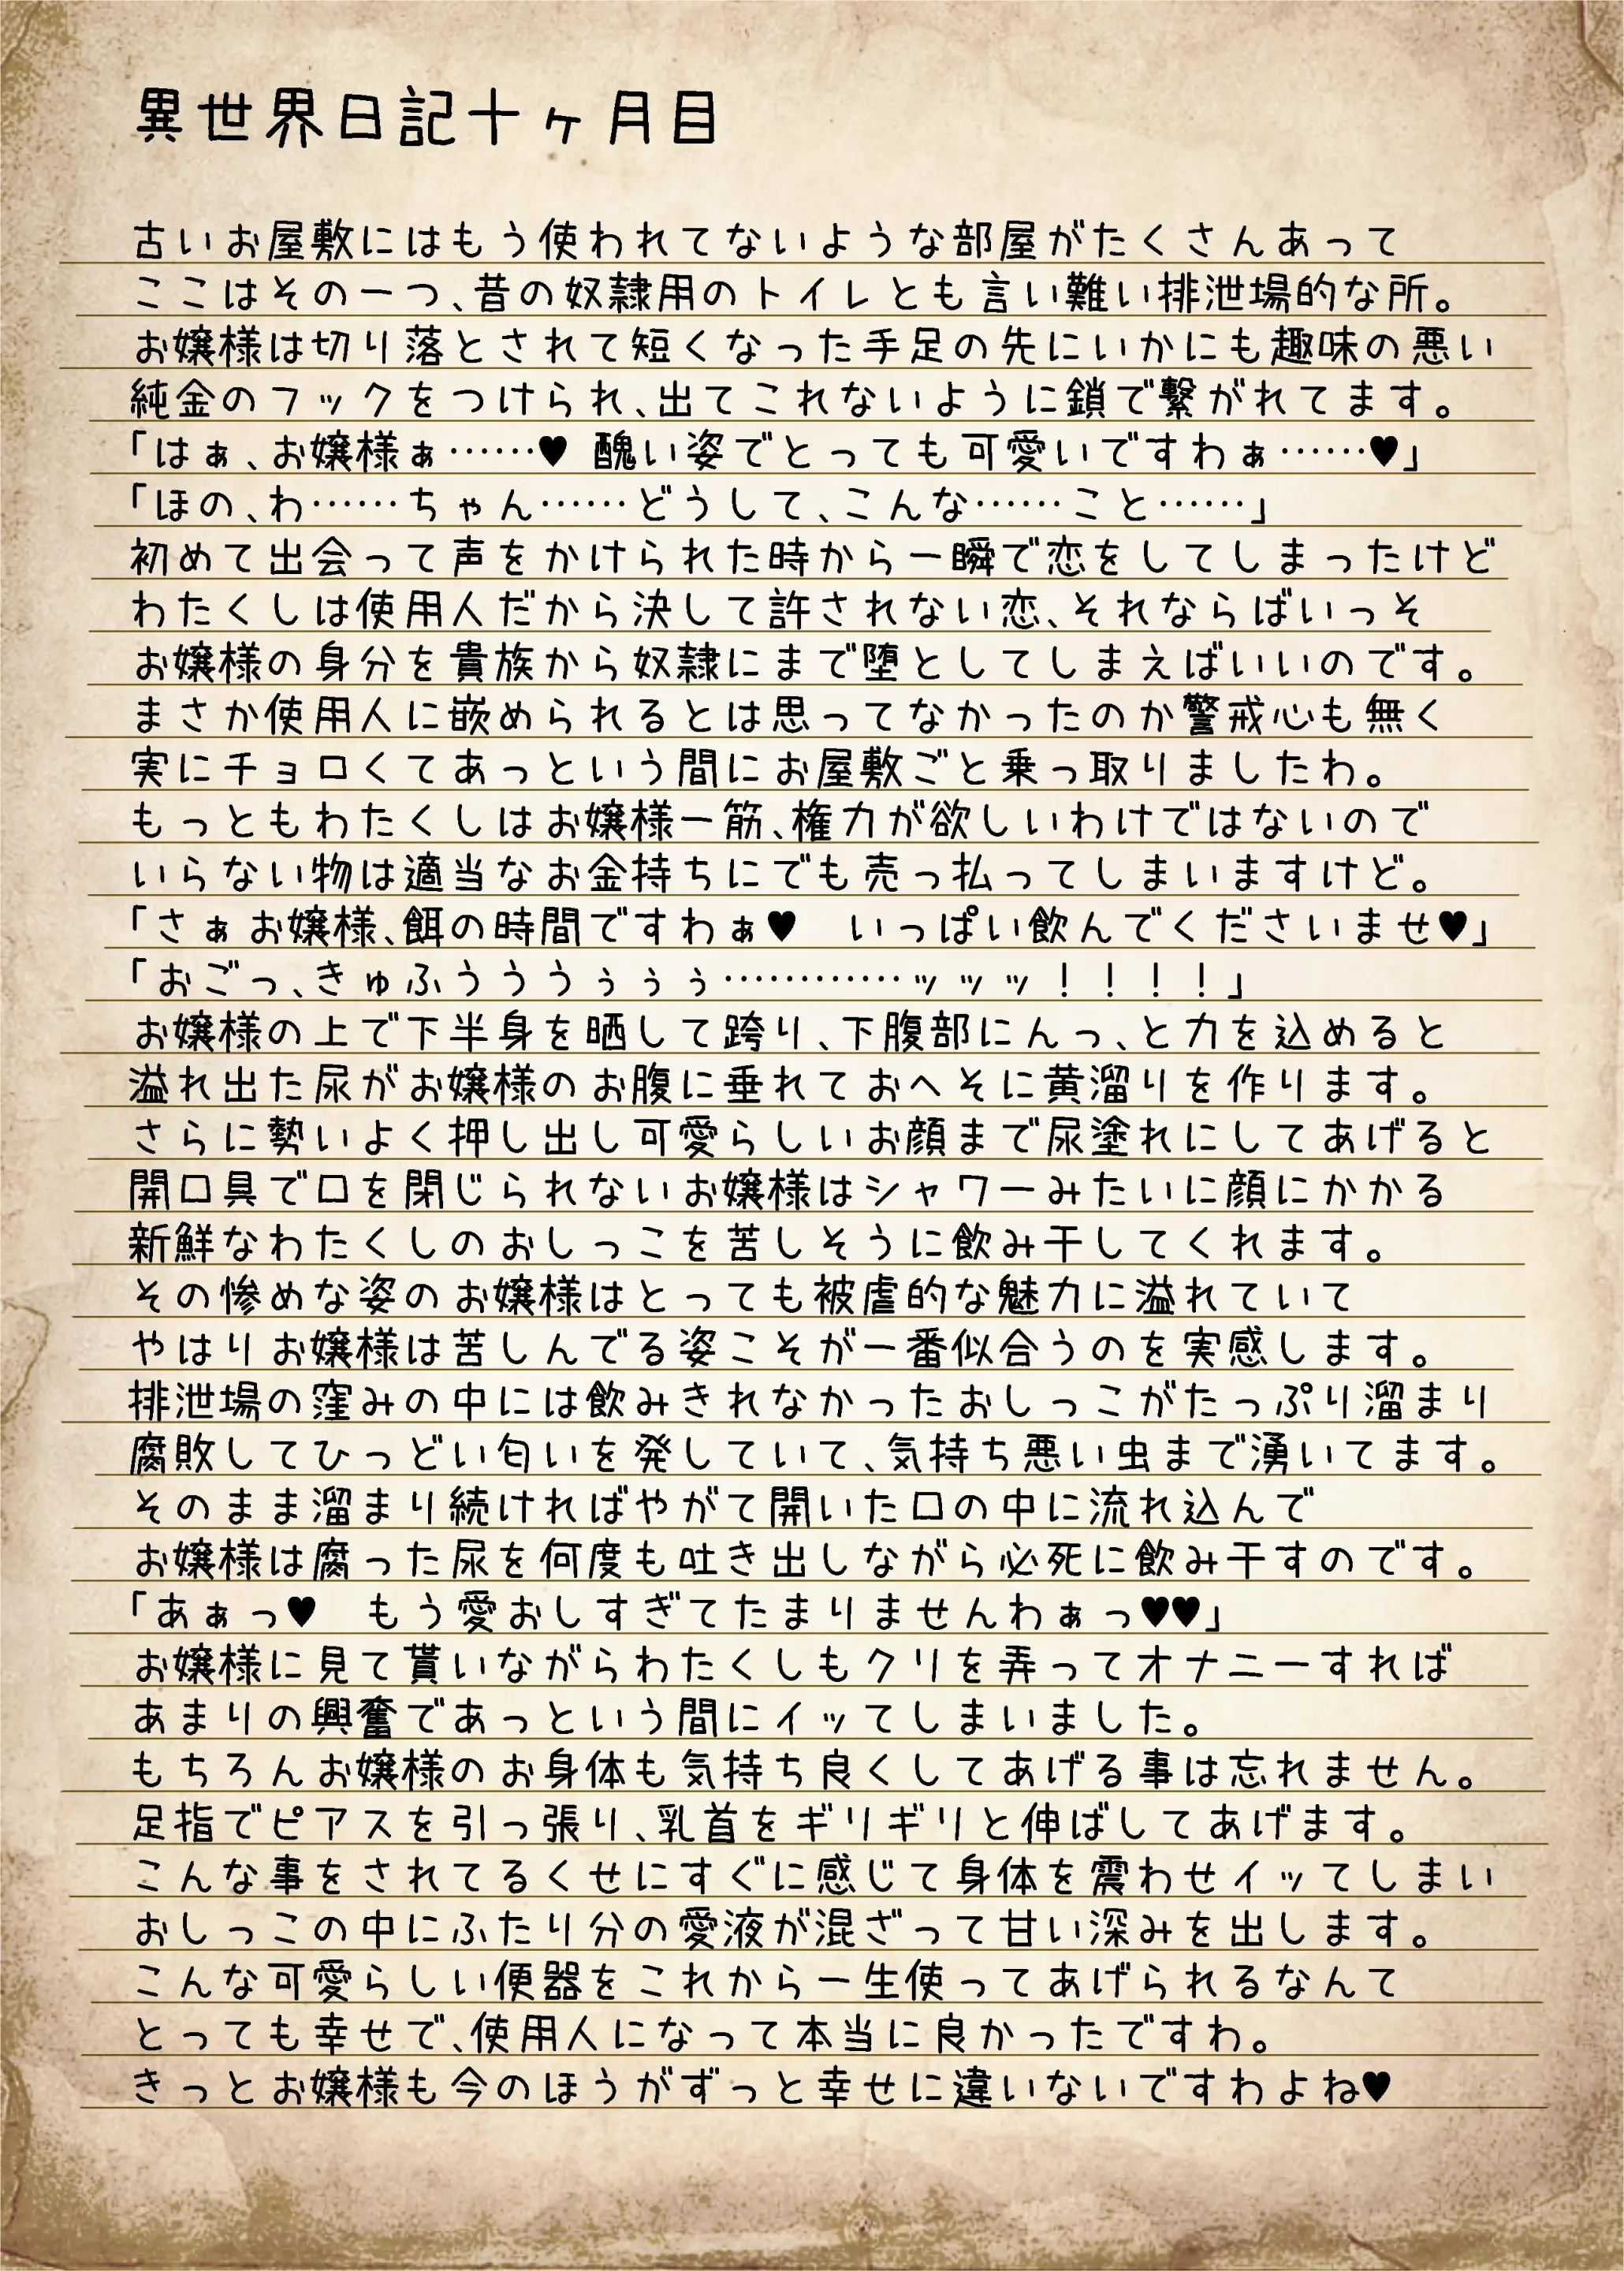 異世界日記十ヶ月目
古いお屋敷にはもう使われてないような部屋がたくさんあって
ここはその一つ、昔の奴隷用のトイレとも言い難い排泄場的な所。
お嬢様は切り落とされて短くなった手足の先にいかにも趣味の悪い
純金のフックをつけられ、出てこれないように鎖で繋がれてます。
「はぁ、お嬢様ぁ……♥ 醜い姿でとっても可愛いですわぁ……♥」
「ほの、わ……ちゃん……どうして、こんな……こと……」
初めて出会って声をかけられた時から一瞬で恋をしてしまったけど
わたくしは使用人だから決して許されない恋、それならばいっそ
お嬢様の身分を貴族から奴隷にまで堕としてしまえばいいのです。
まさか使用人に嵌められるとは思ってなかったのか警戒心も無く
実にチョロくてあっという間にお屋敷ごと乗っ取りましたわ。
もっともわたくしはお嬢様一筋、権力が欲しいわけではないので
いらない物は適当なお金持ちにでも売っ払ってしまいますけど。
「さぁお嬢様、餌の時間ですわぁ♥　いっぱい飲んでくださいませ♥」
「おごっ、きゅふうううぅぅぅ…………ッッッ！！！！」
お嬢様の上で下半身を晒して跨り、下腹部にんっ、と力を込めると
溢れ出た尿がお嬢様のお腹に垂れておへそに黄溜りを作ります。
さらに勢いよく押し出し可愛らしいお顔まで尿塗れにしてあげると
開口具で口を閉じられないお嬢様はシャワーみたいに顔にかかる
新鮮なわたくしのおしっこを苦しそうに飲み干してくれます。
その惨めな姿のお嬢様はとっても被虐的な魅力に溢れていて
やはりお嬢様は苦しんでる姿こそが一番似合うのを実感します。
排泄場の窪みの中には飲みきれなかったおしっこがたっぷり溜まり
腐敗してひっどい匂いを発していて、気持ち悪い虫まで湧いてます。
そのまま溜まり続ければやがて開いた口の中に流れ込んで
お嬢様は腐った尿を何度も吐き出しながら必死に飲み干すのです。
「あぁっ♥　もう愛おしすぎてたまりませんわぁっ♥♥」
お嬢様に見て貰いながらわたくしもクリを弄ってオナニーすれば
あまりの興奮であっという間にイッてしまいました。
もちろんお嬢様のお身体も気持ち良くしてあげる事は忘れません。
足指でピアスを引っ張り、乳首をギリギリと伸ばしてあげます。
こんな事をされてるくせにすぐに感じて身体を震わせイッてしまい
おしっこの中にふたり分の愛液が混ざって甘い深みを出します。
こんな可愛らしい便器をこれから一生使ってあげられるなんて
とっても幸せで、使用人になって本当に良かったですわ。
きっとお嬢様も今のほうがずっと幸せに違いないですわよね♥